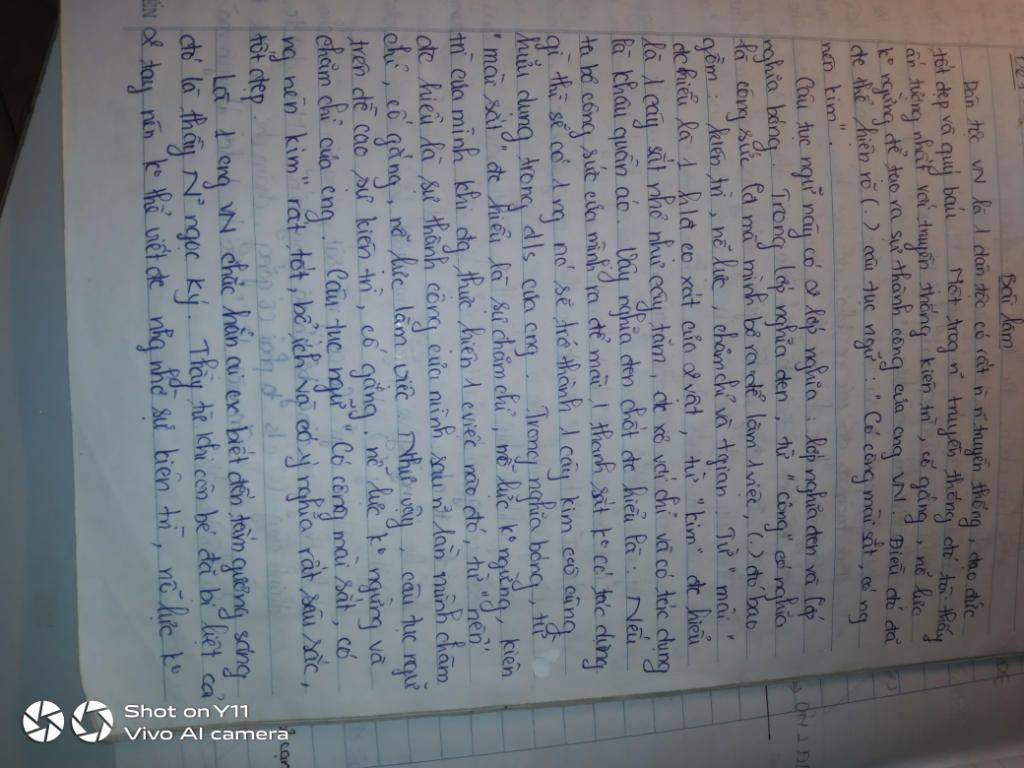 Bài làm
Dân tộc VN là 1 dân tộc có rất n n truyền thống, đạo đức
tốt đẹp và quý báu. Một trog n truyền thống đó tôi thấy
ấn tượng nhất với truyền thống kiên trì, cố gắng, nỗ lực
k° ngừng để tạo ra sự thành công của cng VN. Điều đó đã
đc thể hiện rõ (.) câu tục ngữ: "Có công mài sắt, có ng
nên kim".
Câu tục ngữ này có 2 lớp nghĩa, lớp nghĩa đen và lớp
nghĩa bóng. Trong lớp nghĩa đen, từ "công" có nghĩa
là công sức mà mình bỏ ra để làm 1 việc, (.) đó bao
gồm: kiên trì, nỗ lực, chăm chỉ và tgian. Từ "mài"
đc hiểu là 1 hđ cọ xát của 2 vật, từ "kim" đc hiểu
là 1 cây sắt nhỏ như cây tăm, đc xỏ với chỉ và có tác dụng
là khâu quần áo. Vậy nghĩa đen chốt đc hiểu là: Nếu
ta bỏ công sức của mình ra để mài 1 thanh sắt k° có tác dụng
gì thì sẽ có 1 ng nó sẽ trở thành 1 cây kim vô cùng
hữu dụng trong đ/s của cng. Trong nghĩa bóng, từ
"mài sắt" đc hiểu là sự chăm chỉ, nỗ lực k° ngừng, kiên
trì của mình khi đg thực hiện 1 việc nào đó, từ "nên
đc hiểu là sự thành công của mình sau n lần mình chăm
chỉ, cố gắng, nỗ lực làm việc. Như vậy, câu tục ngữ
trên đề cao sự kiên trì, cố gắng, nỗ lực k° ngừng và
chăm chỉ của cng. Câu tục ngữ "Có công mài sắt, có
ng nên kim" rất tốt, bổ ích và có ý nghĩa rất sâu sắc,
tốt đẹp.
Là 1 cng VN chắc hẳn ai cx biết đến tấm gương sáng
đó là thầy N ngọc Ký. Thầy từ khi còn bé đã bị liệt cả
2 tay nên k° thể viết đc nhg nhờ sự kiên trì, nỗ lực k°
Shot on Y11
Vivo AI camera